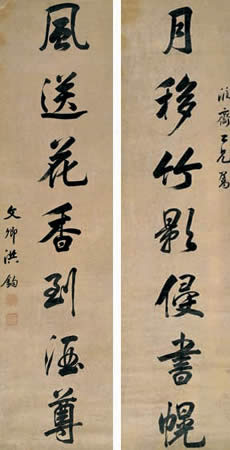 月移竹影侵書幌
風送花香到酒尊
文卿洪鈞